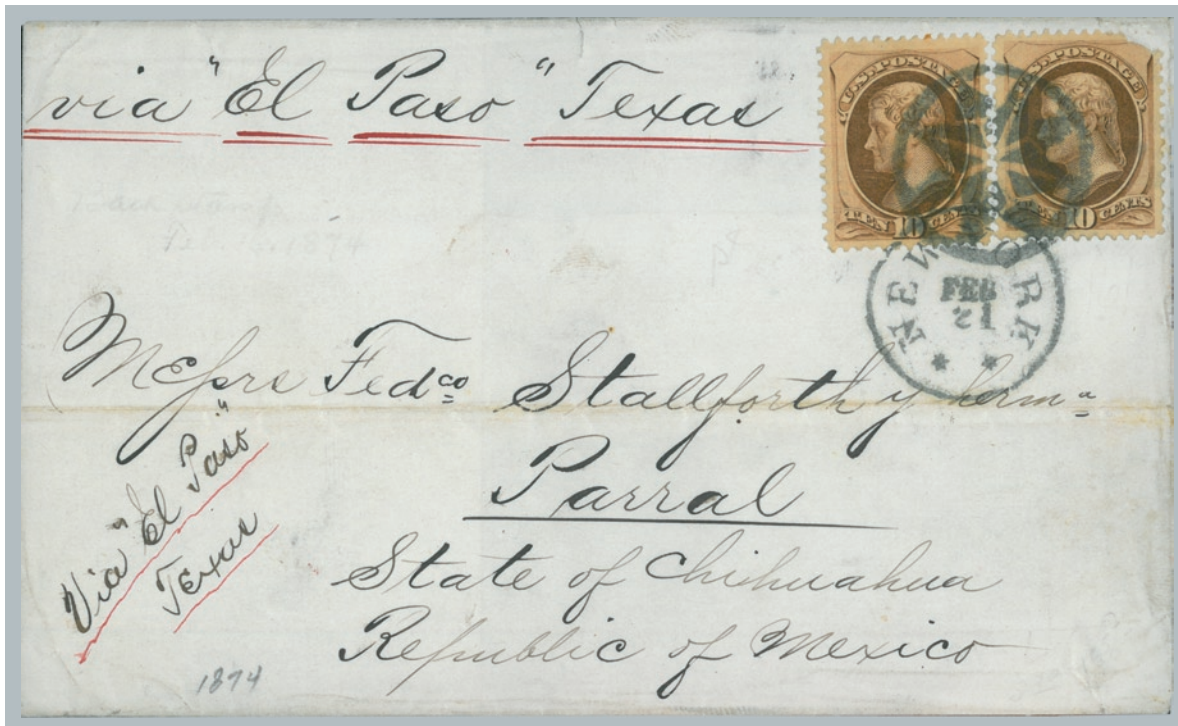 via "El Paso" Texas
U.S. POSTAGE
TEN 10 CENTS
U.S. POSTAGE
TEN 10 CENTS
NEW YORK
FEB
21
Back stamp
1874
Messrs Fedco Stallforth y herma
Parral
State of Chihuahua
Republic of Mexico
Via "El Paso"
Texas
1874